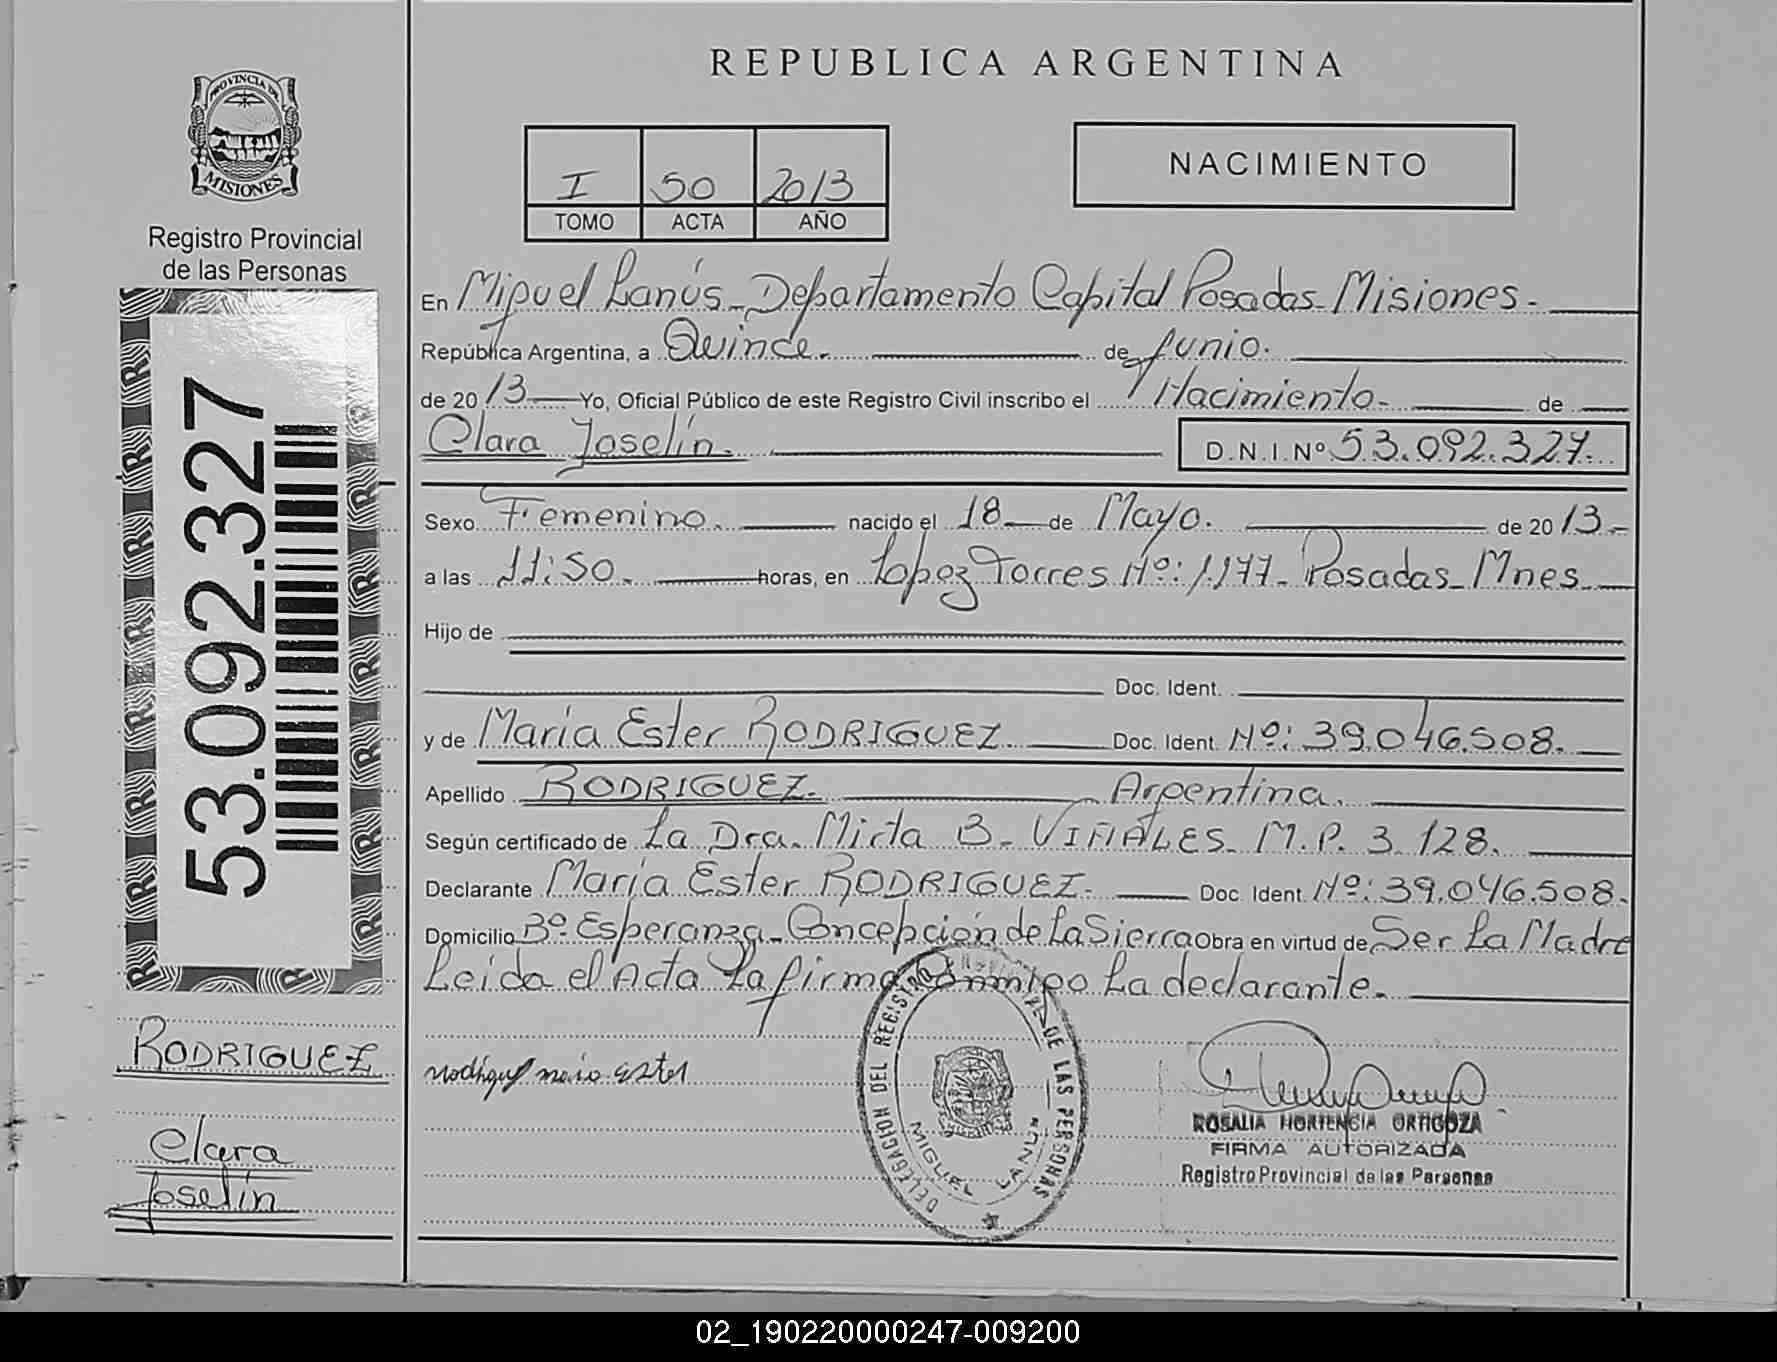 REPUBLICA ARGENTINA
PROVINCIA DE
MISIONES
Registro Provincial
de las Personas
53.092.327
RODRIGUEZ
Clara
Joselín
I 50 2013
TOMO ACTA AÑO
NACIMIENTO
En Miguel Lanús - Departamento Capital Posadas - Misiones -
República Argentina, a Quince. de Junio.
de 2013 Yo, Oficial Público de este Registro Civil inscribo el Nacimiento - de
Clara Joselín. D.N.I.Nº 53.092.327.
Sexo Femenino. nacido el 18 de Mayo. de 2013.-
a las 11:50. horas, en Lopez Torres Nº: 1177 - Posadas - Mnes
Hijo de
Doc. Ident.
y de María Ester RODRIGUEZ Doc. Ident. Nº: 39.046.508.
Apellido RODRIGUEZ. Argentina.
Según certificado de La Dra. Mirta B. VIÑALES - M.P. 3.128.
Declarante María Ester RODRIGUEZ. Doc. Ident. Nº: 39.046.508.
Domicilio Bº Esperanza - Concepción de La Sierra Obra en virtud de Ser La Madre
Leida el Acta La firma Conmigo La declarante.
Rodriguez maria ester
DELEGACION DEL REGISTRO PROVINCIAL DE LAS PERSONAS
MIGUEL LANUS
ROSALIA HORTENCIA ORTIGOZA
FIRMA AUTORIZADA
Registro Provincial de las Personas
02_190220000247-009200